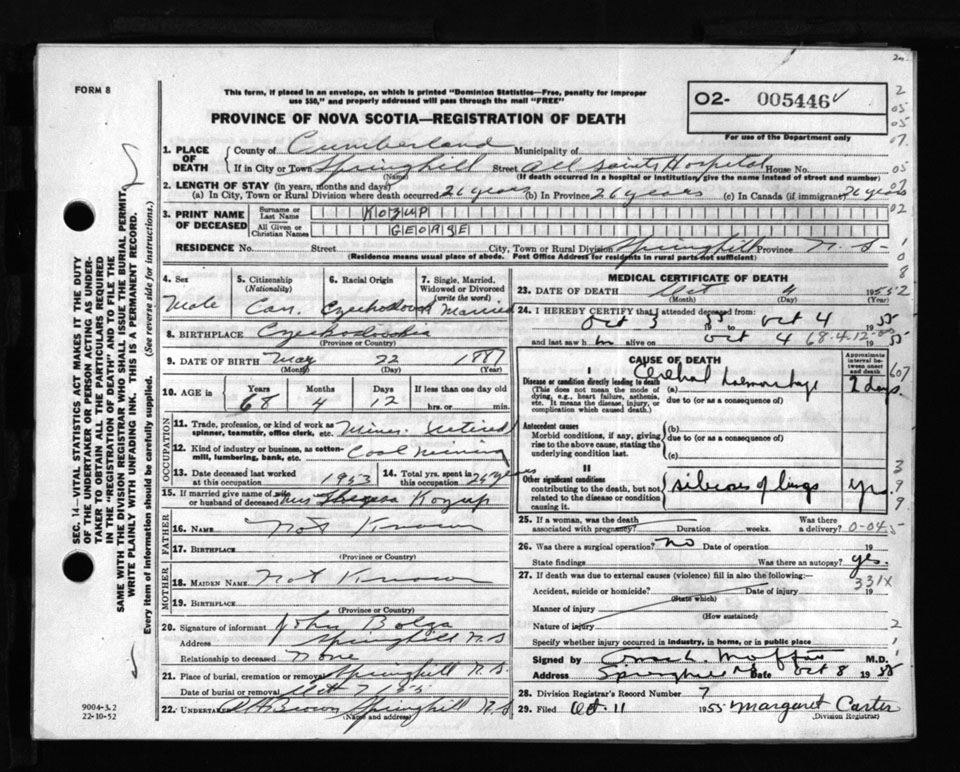 FORM 8
This form, if placed in an envelope, on which is printed "Dominion Statistics—Free, penalty for improper
use $50," and properly addressed will pass through the mail "FREE"
PROVINCE OF NOVA SCOTIA—REGISTRATION OF DEATH
O2- 005446
For use of the Department only
1. PLACE OF DEATH
County of Cumberland Municipality of
If in City or Town Springhill Street All Saints Hospital House No.
(Name) (If death occurred in a hospital or institution, give the name instead of street and number)
2. LENGTH OF STAY (in years, months and days)
(a) In City, Town or Rural Division where death occurred 26 years (b) In Province 26 years (c) In Canada (if immigrant) 26 years
3. PRINT NAME OF DECEASED
Surname or Last Name KOZUP
All Given or Christian Names GEORGE
RESIDENCE No. Street City, Town or Rural Division Springhill Province N.S.
(Residence means usual place of abode. Post Office Address for residents in rural parts not sufficient)
4. Sex Male
5. Citizenship (Nationality) Can.
6. Racial Origin
7. Single, Married, Widowed or Divorced (write the word) Married
8. BIRTHPLACE Czechoslovakia
(Province or Country)
9. DATE OF BIRTH May 22 1887
(Month) (Day) (Year)
10. AGE in Years 68 Months 4 Days 12 If less than one day old
hrs. or min.
OCCUPATION
11. Trade, profession, or kind of work as spinner, teamster, office clerk, etc. Miner retired
12. Kind of industry or business, as cotton-mill, lumbering, bank, etc. Coal mining
13. Date deceased last worked at this occupation 1953
14. Total yrs. spent in this occupation 25 years
15. If married give name of wife or husband of deceased Mrs Kozup
FATHER
16. NAME Not Known
17. BIRTHPLACE
(Province or Country)
MOTHER
18. MAIDEN NAME Not Known
19. BIRTHPLACE
(Province or Country)
20. Signature of informant John Bolga
Address Springhill N.S
Relationship to deceased None
21. Place of burial, cremation or removal Springhill N.S.
Date of burial or removal Oct 7/55
22. Undertaker Brown Springhill N.S
(Name and address)
MEDICAL CERTIFICATE OF DEATH
23. DATE OF DEATH Oct 4 1955
(Month) (Day) (Year)
24. I HEREBY CERTIFY that I attended deceased from:
Oct 3 1955 to Oct 4 1955
and last saw h im alive on Oct 4 1955
68-4-12
CAUSE OF DEATH
Approximate interval between onset and death
I
Disease or condition directly leading to death
(This does not mean the mode of dying, e.g., heart failure, asthenia, etc. It means the disease, injury, or complication which caused death.)
(a) Cerebral haemorrhage 2 days
due to (or as a consequence of)
Antecedent causes
Morbid conditions, if any, giving rise to the above cause, stating the underlying condition last.
(b)
due to (or as a consequence of)
(c)
II
Other significant conditions
contributing to the death, but not related to the disease or condition causing it.
silicosis of lungs yrs.
25. If a woman, was the death associated with pregnancy? Duration weeks. Was there a delivery?
26. Was there a surgical operation? No Date of operation 19
State findings Was there an autopsy? yes.
27. If death was due to external causes (violence) fill in also the following:—
331X
Accident, suicide or homicide? Date of injury 19
(State which)
Manner of injury
(How sustained)
Nature of injury
Specify whether injury occurred in industry, in home, or in public place
Signed by M.D.
Address Springhill NS Date Oct 8 1955
28. Division Registrar's Record Number 7
29. Filed Oct. 11 1955 Margaret Carter
(Division Registrar)
SEC. 14—VITAL STATISTICS ACT MAKES IT THE DUTY
OF THE UNDERTAKER OR PERSON ACTING AS UNDER-
TAKER TO OBTAIN ALL THE PARTICULARS REQUIRED
IN THE "REGISTRATION OF DEATH" AND TO FILE THE
SAME WITH THE DIVISION REGISTRAR WHO SHALL ISSUE THE BURIAL PERMIT.
WRITE PLAINLY WITH UNFADING INK. THIS IS A PERMANENT RECORD.
Every item of information should be carefully supplied. (See reverse side for instructions.)
9004-3.2
22-10-52